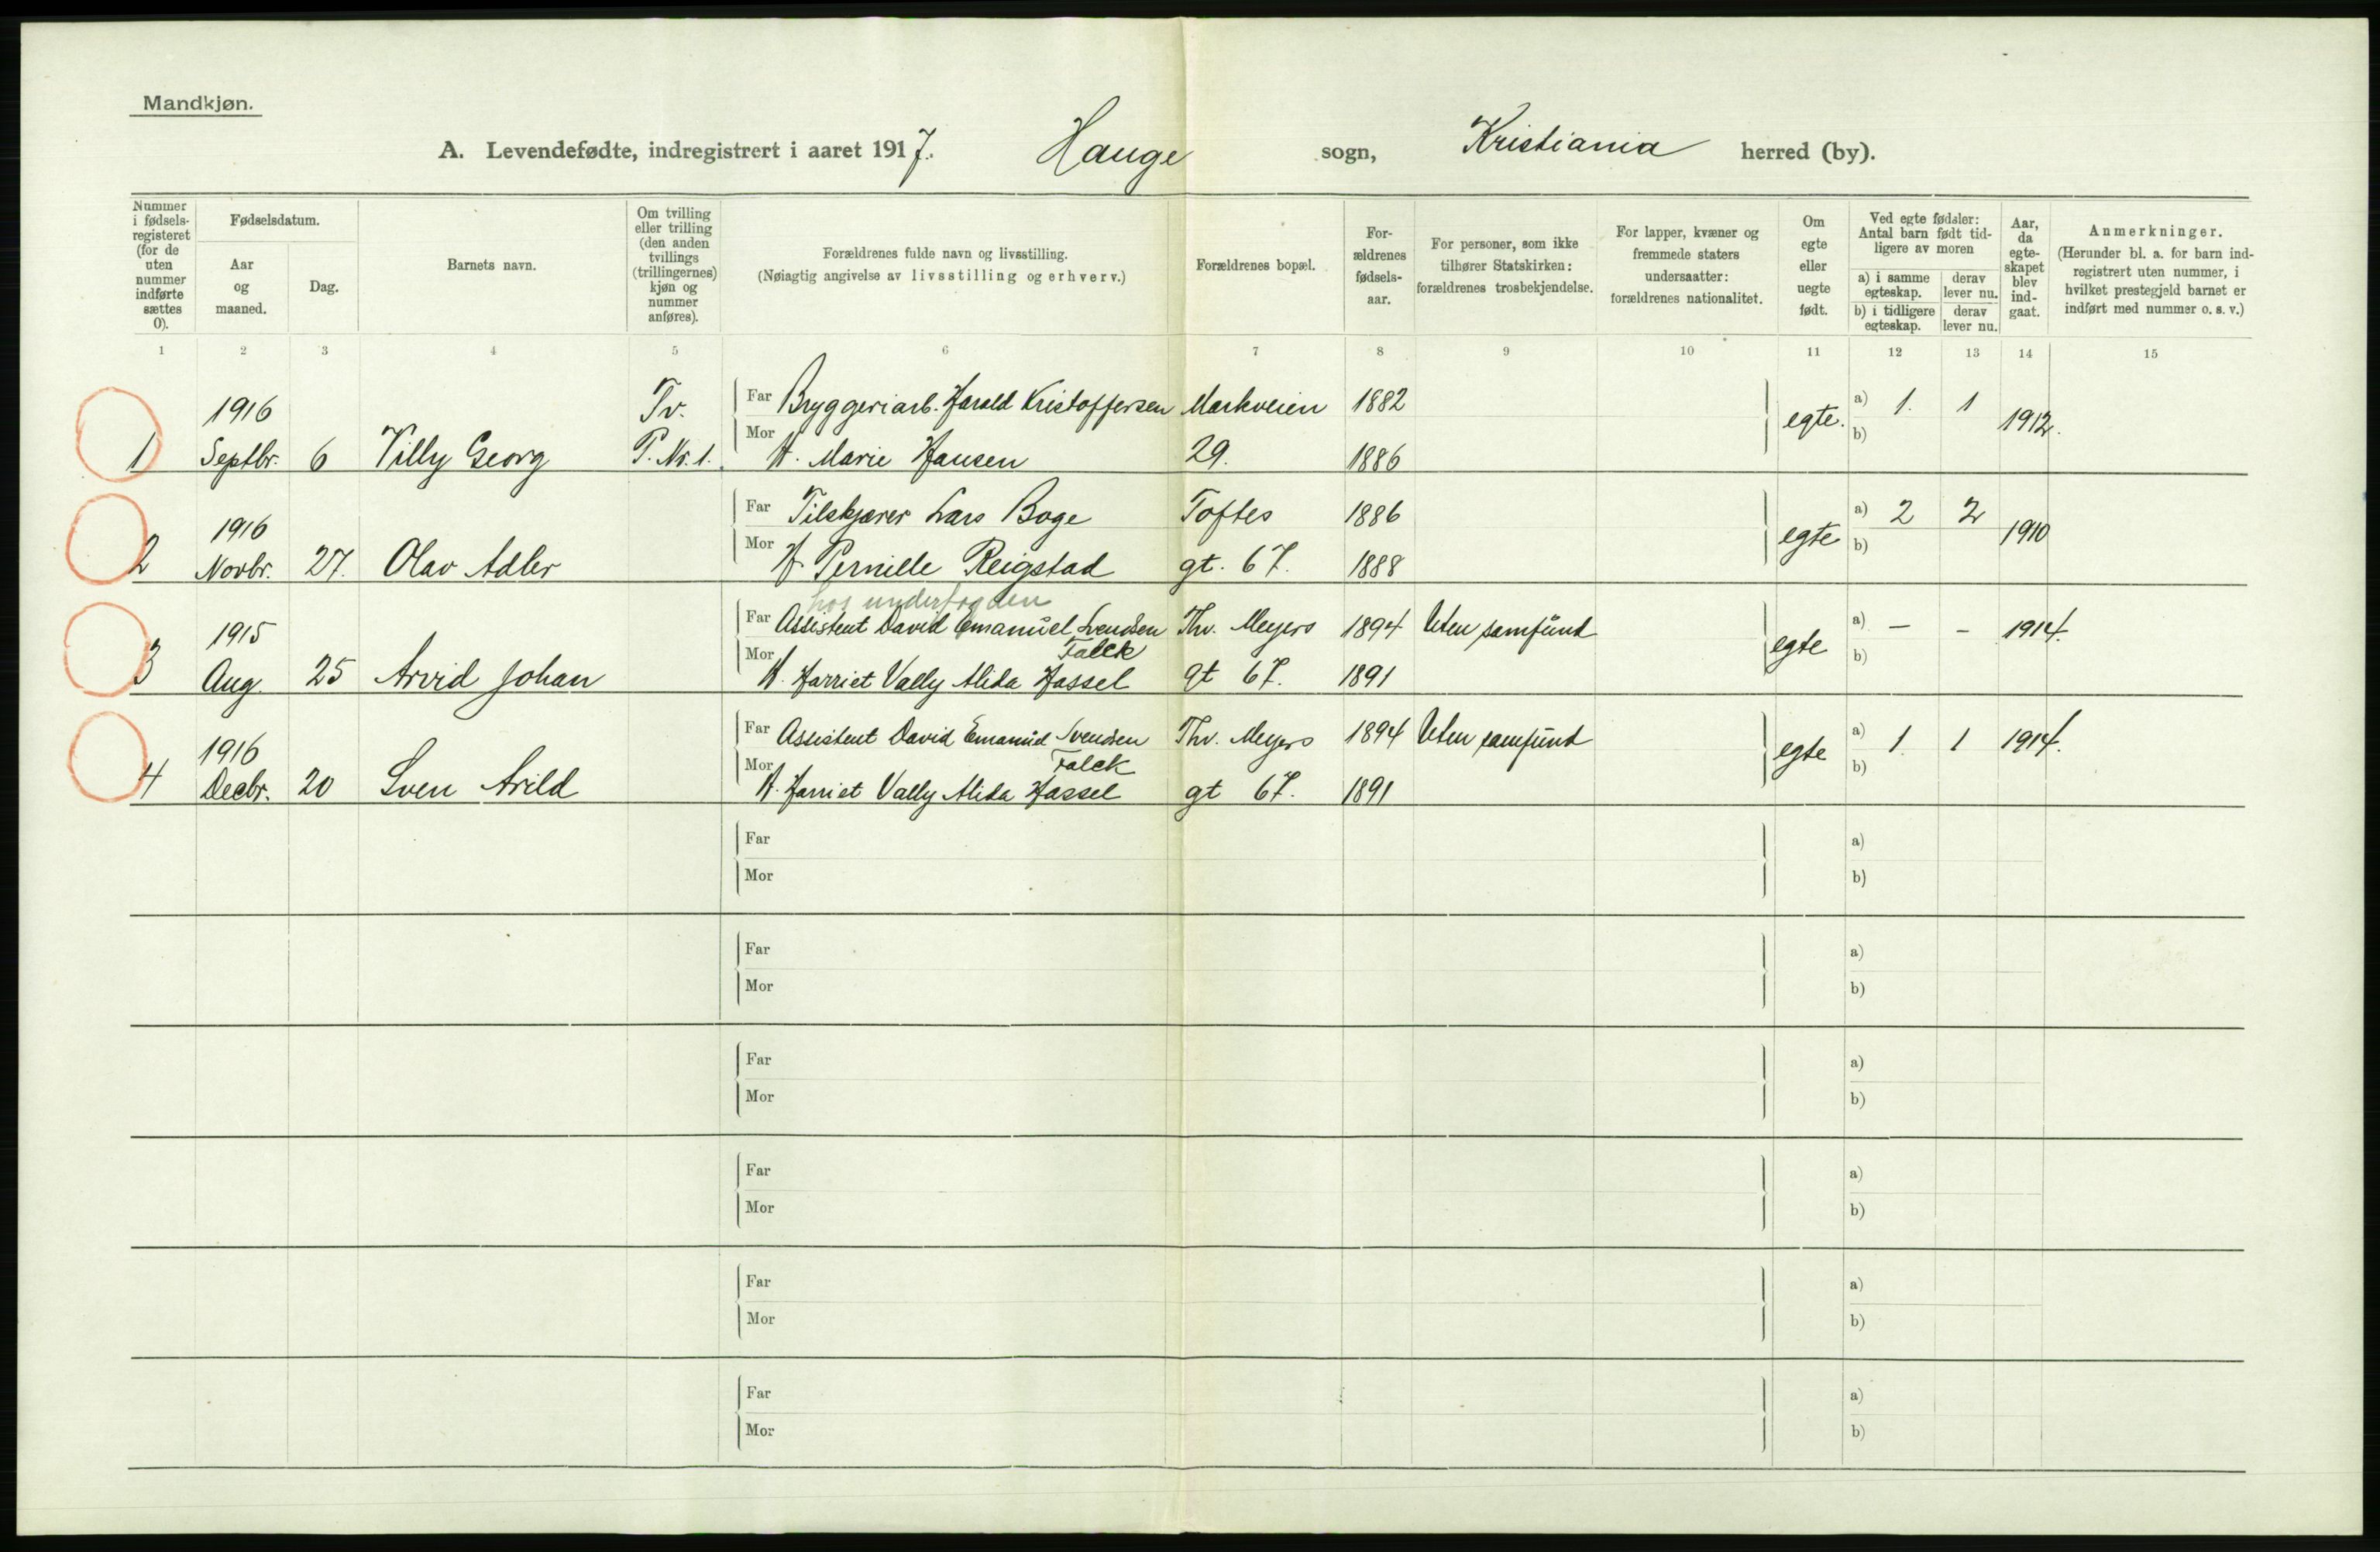 Mandkjøn.
A. Levendefødte, indregistrert i aaret 1917. Hauge sogn, Kristiania herred (by).
Nummer i fødsels-registeret (for de uten nummer indførte sættes 0).
Fødselsdatum.
Aar og maaned.
Dag.
Barnets navn.
Om tvilling eller trilling (den anden tvillings (trillingernes) kjøn og nummer anføres).
Forældrenes fulde navn og livsstilling.
(Nøiagtig angivelse av livsstilling og erhverv.)
Forældrenes bopæl.
For-ældrenes fødsels-aar.
For personer, som ikke tilhører Statskirken: forældrenes trosbekjendelse.
For lapper, kvæner og fremmede staters undersaatter: forældrenes nationalitet.
Om egte eller uegte født.
Ved egte fødsler: Antal barn født tid-ligere av moren
a) i samme egteskap.
derav lever nu.
b) i tidligere egteskap.
derav lever nu.
Aar, da egte-skapet blev ind-gaat.
Anmerkninger.
(Herunder bl. a. for barn ind-registrert uten nummer, i hvilket prestegjeld barnet er indført med nummer o. s. v.)
1 2 3 4 5 6 7 8 9 10 11 12 13 14 15
1916 Tv. Far Bryggeriarb. Harald Kristoffersen Markveien 1882 egte. a) 1. 1 1912.
1 Septbr. 6 Villy Georg P. Nr. 1. Mor H. Marie Hansen 29. 1886 b)
1916 Far Tilskjærer Lars Boge Toftes 1886 egte a) 2 2 1910
2 Novbr. 27. Olav Adler Mor H. Pernille Reigstad gt. 67. 1888 b)
hos underfogden
1915 Far Assistent David Emanuel Svendsen Thv. Meyers 1894 Uten samfund egte a) - - 1914.
Falck
3 Aug. 25 Arvid Johan Mor H. Harriet Vally Alida Hassel gt 67. 1891 b)
1916 Far Assistent David Emanuel Svendsen Thv. Meyers 1894 Uten samfund egte a) 1 1 1914.
Falck
4 Decbr. 20 Sven Arild Mor H. Harriet Vally Alida Hassel gt 67. 1891 b)
Far a)
Mor b)
Far a)
Mor b)
Far a)
Mor b)
Far a)
Mor b)
Far a)
Mor b)
Far a)
Mor b)